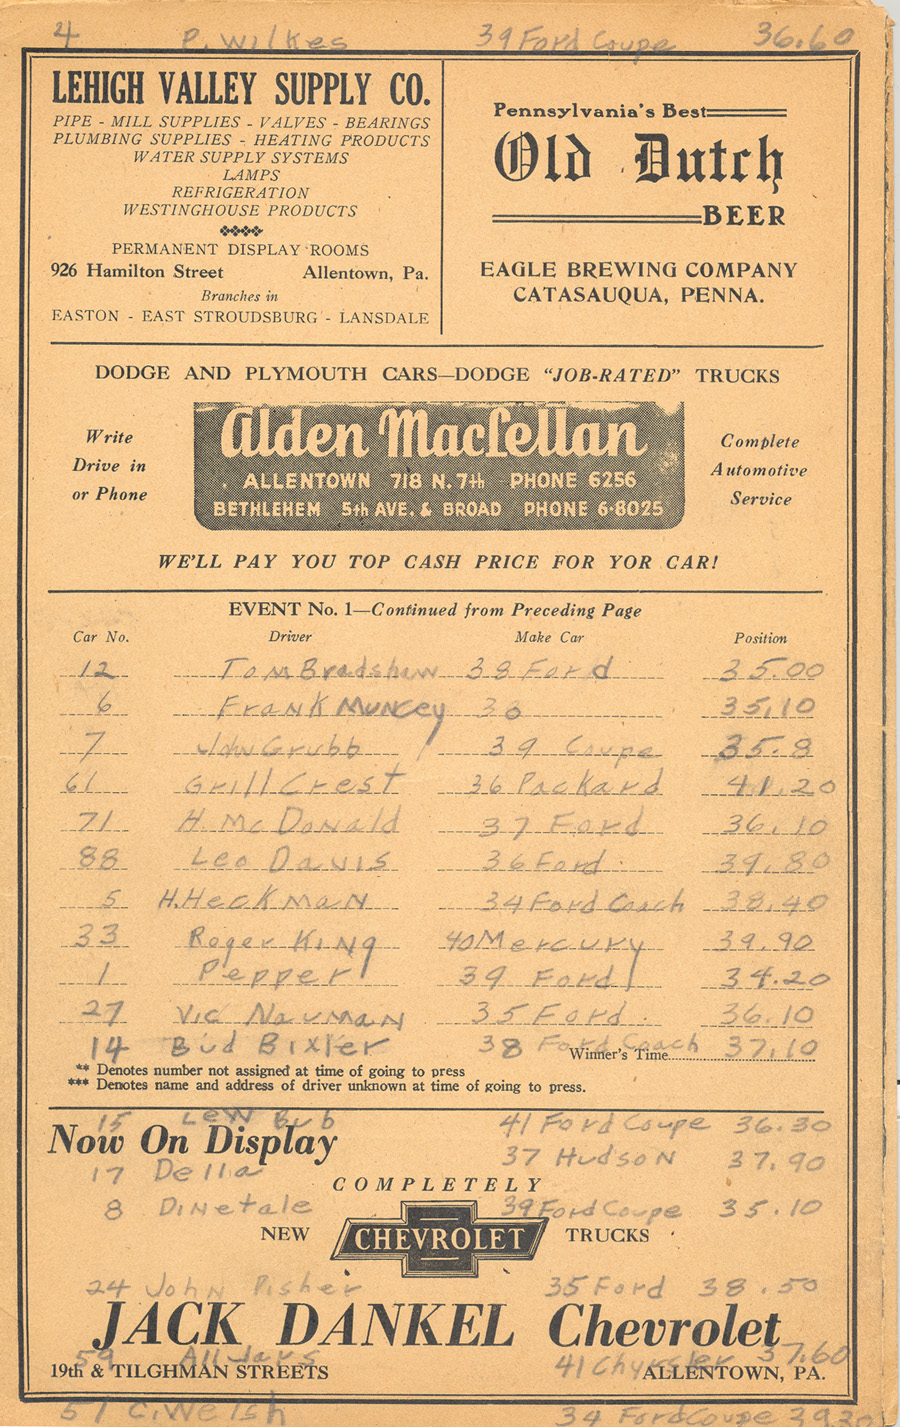 4 P. Wilkes 39 Ford Coupe 36.60
LEHIGH VALLEY SUPPLY CO.
PIPE - MILL SUPPLIES - VALVES - BEARINGS
PLUMBING SUPPLIES - HEATING PRODUCTS
WATER SUPPLY SYSTEMS
LAMPS
REFRIGERATION
WESTINGHOUSE PRODUCTS
PERMANENT DISPLAY ROOMS
926 Hamilton Street Allentown, Pa.
Branches in
EASTON - EAST STROUDSBURG - LANSDALE
Pennsylvania's Best
Old Dutch
BEER
EAGLE BREWING COMPANY
CATASAUQUA, PENNA.
DODGE AND PLYMOUTH CARS—DODGE "JOB-RATED" TRUCKS
Write
Drive in
or Phone
Alden MacLellan
ALLENTOWN 718 N. 7th PHONE 6256
BETHLEHEM 5th AVE. & BROAD PHONE 6-8025
Complete
Automotive
Service
WE'LL PAY YOU TOP CASH PRICE FOR YOR CAR!
EVENT No. 1—Continued from Preceding Page
Car No. Driver Make Car Position
12 Tom Bradshaw 38 Ford 35.00
6 Frank Muncey 36 35.10
7 John Grubb 39 Coupe 35.8
61 Grill Crest 36 Packard 41.20
71 H. McDonald 37 Ford 36.10
88 Leo Davis 36 Ford 39.80
5 H. Heckman 34 Ford Coach 38.40
33 Roger King 40 Mercury 39.90
1 Pepper 39 Ford 34.20
27 Vic Nauman 35 Ford 36.10
14 Bud Bixler 38 Ford Coach 37.10
Winner's Time
** Denotes number not assigned at time of going to press
*** Denotes name and address of driver unknown at time of going to press.
15 Lew Bub 41 Ford Coupe 36.30
Now On Display
17 Della 37 Hudson 37.90
COMPLETELY
8 Dinetale 39 Ford Coupe 35.10
NEW CHEVROLET TRUCKS
24 John Pisher 35 Ford 38.50
JACK DANKEL Chevrolet
59 All Jars 41 Chyrsler 37.60
19th & TILGHMAN STREETS ALLENTOWN, PA.
51 C. Welsh 34 Ford Coupe 39.20